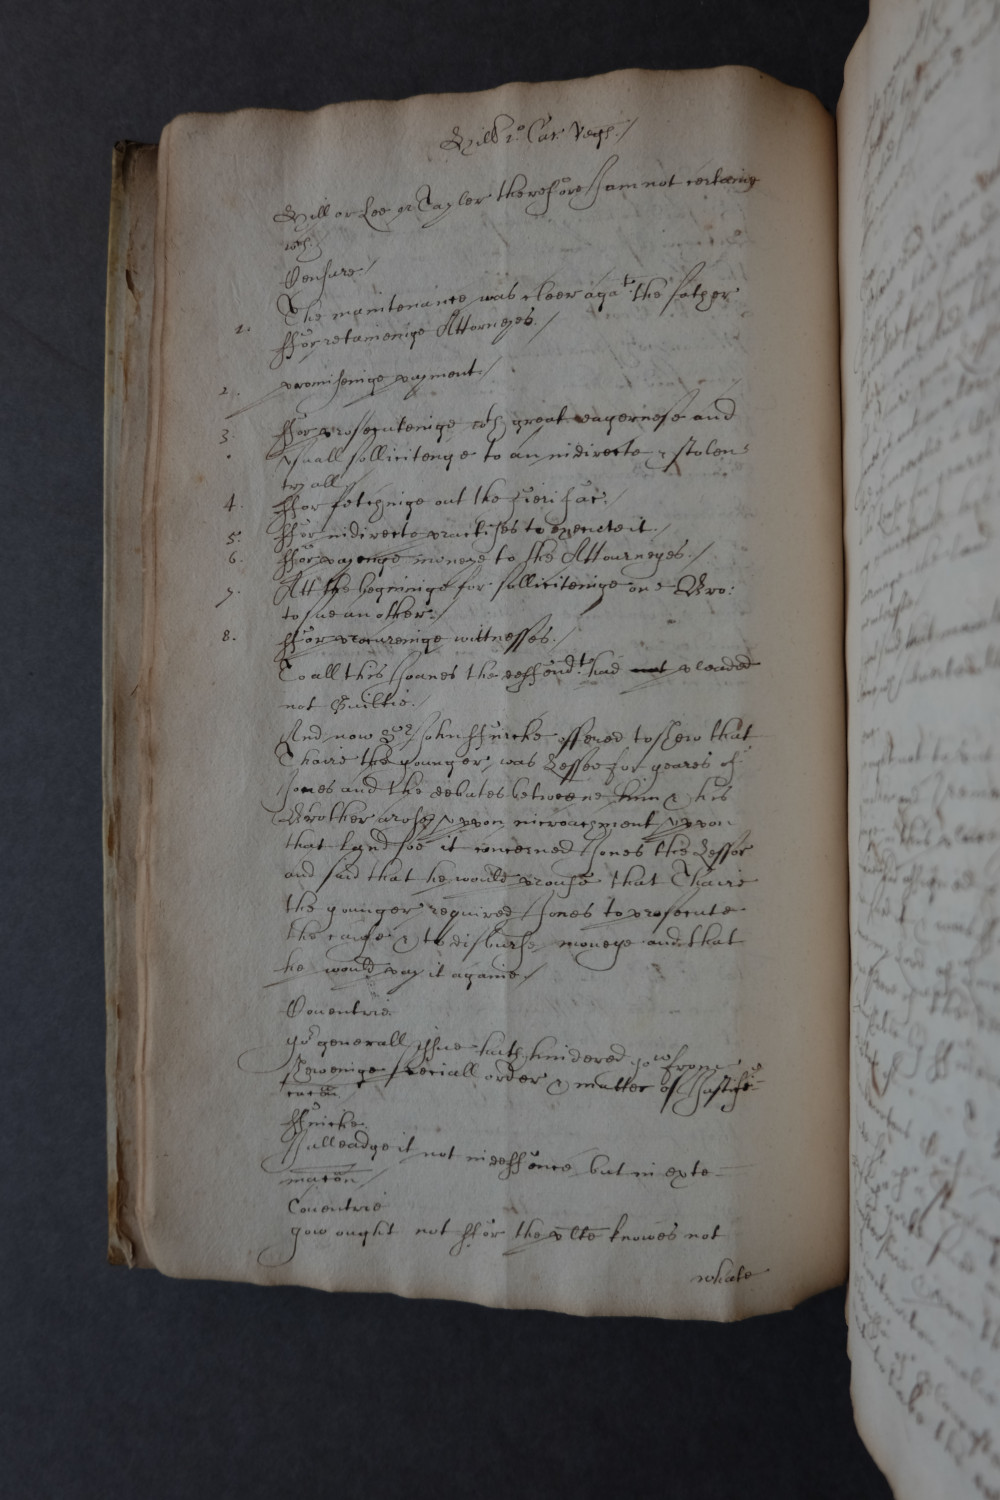 Hill 2o. Car. Regs./
Hill or Lee or Tayler therefore I am not certaine
wch./
Densure./
1. The maintenance was cleer agat the father
ffor retaineinge Attorneyes./
2. promiseinge payment./
3. ffor prosecuteinge wth great eagernesse and
vsuall sollicitenge to an indirecte & stolen
tryall
4. ffor fetchinge out the fieri fac./
5. ffor indirecte practises to execute it./
6. ffor payenge moneye to the Attourneyes./
7. Att the beginninge for sollicitenge one Bro:
to sue another./
8. ffor procureinge wittnesses./
To all this the deffendts. had not pleaded
not Guiltie./
And now John ffincke offered to shew that
Chaire the younger was Lessee for yeares of
Jones and the debates betweene him & his
Brother arose vppon incroachment vppon
that land soe it concerned Jones the Lessor
and said that he would proue that Chaire
the younger required Jones to prosecute
the cause & to disburse moneye and that
he would pay it againe./
Couentrie
yor generall issue hath hindered yow from
sheweinge speciall order & matter of Justifi=
cacon
ffincke.
I alleadge it not in deffence but in exte=
nuacon/
Couentrie
yow ought not ffor the plte knowes not
whate